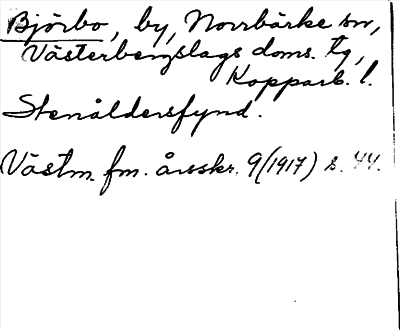 Björbo, by, Norrbärke sn,
Västerbergslags doms. tg,
Kopparb. l.
Stenåldersfynd.
Västm. fm. årsskr. 9 (1917) s. 44.